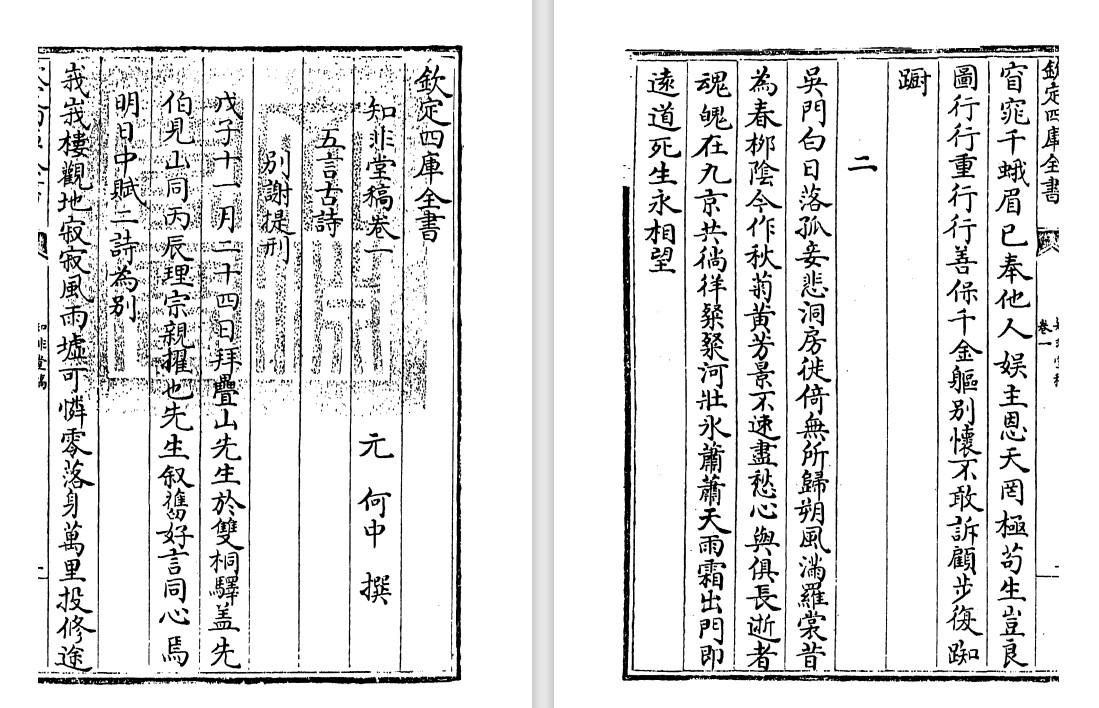 欽定四庫全書
知非堂稿卷一　元 何中 撰
五言古詩
別謝提刑
戊子十一月二十四日拜疊山先生於雙桐驛盖先
伯見山同丙辰理宗親擢也先生叙舊好言同心焉
明日中賦二詩為別
峩峩樓觀地寂寂風雨墟可憐零落身萬里投修途
知非堂稿
欽定四庫全書
卷一
窅窕千蛾眉已奉他人娱主恩天罔極苟生豈良
圖行行重行行善保千金軀別懷不敢訴顧步復踟
蹰
二
吳門白日落孤妾悲洞房徙倚無所歸朔風滿羅裳昔
為春栁陰今作秋菊黄芳景不速盡愁心與俱長逝者
魂魄在九京共徜徉粲粲河壯氷蕭蕭天雨霜出門即
逺道死生永相望